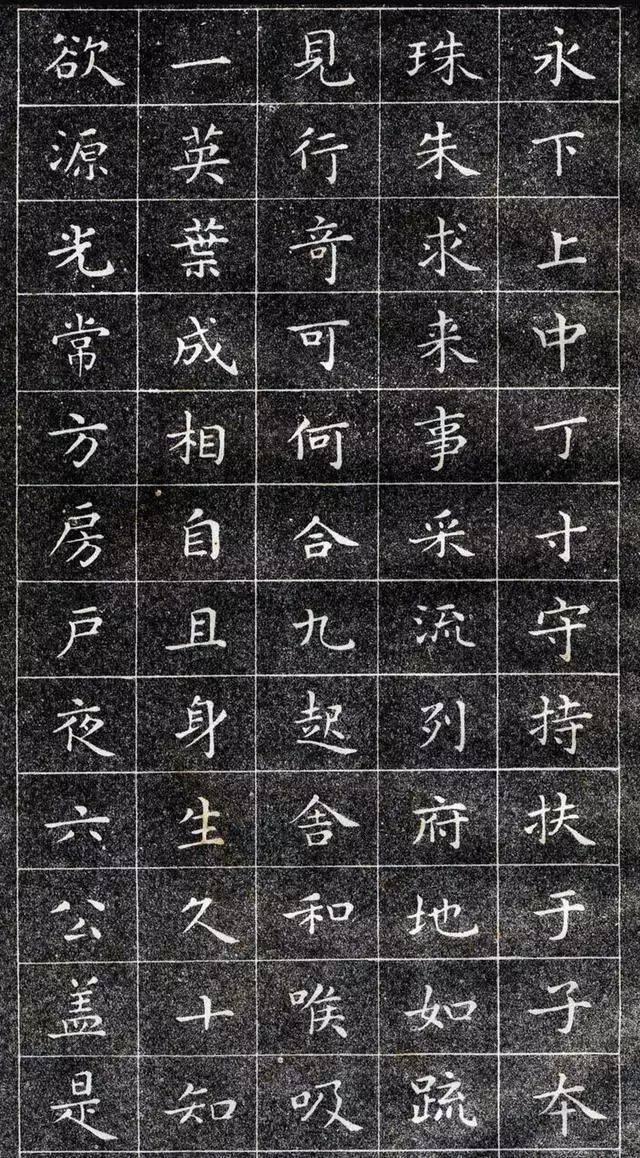 永下上中丁寸守持扶于子本
珠朱求来事采流列府地如䟽
見行奇可何合九起舍和喉吸
一英葉成相自且身生久十知
欲源光常方房戸夜六公盖是